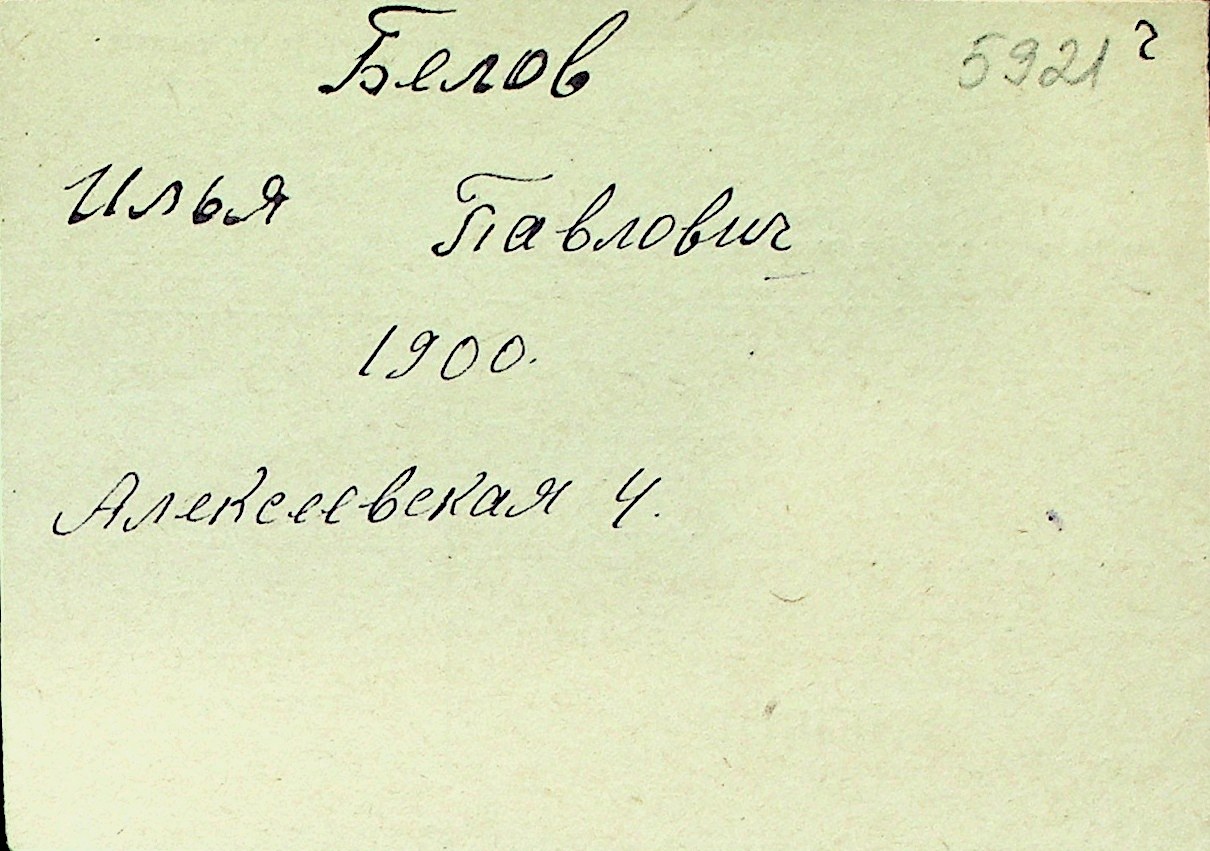 Белов 5921 ч
Илья Павлович
1900.
Алексеевская 4.